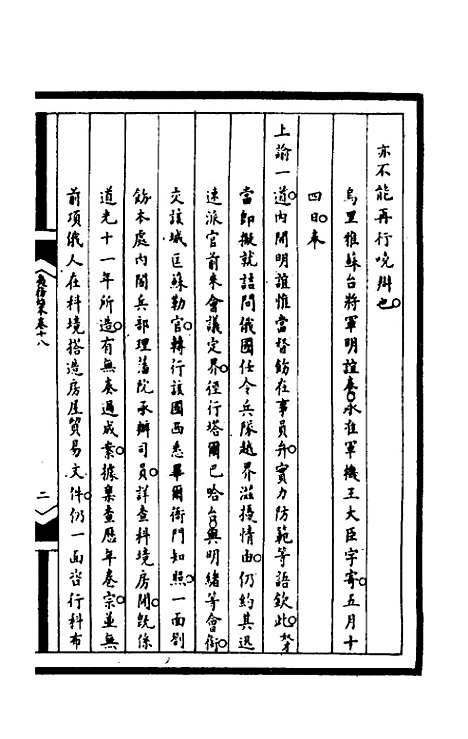 亦不能再行嘵辯也
烏里雅蘇台將軍明誼奏承准軍機王大臣字寄五月十
四日奉
上諭一道內開明誼惟當督飭在事員弁實力防範等語欽此奴才
當即擬就詰問俄國任令兵隊越界滋擾情由仍約其迅
速派官前來會議定界徑行塔爾巴哈台與明緒等會銜
交該城匡蘇勒官轉行該國西悉畢爾衙門知照一面劄
飭本處內閣兵部理藩院承辦司員詳查科境房間既係
道光十一年所造有無奏過成案據稟查歷年卷宗並無
前項俄人在科境搭造房屋貿易文件仍一面咨行科布
卷十八
二